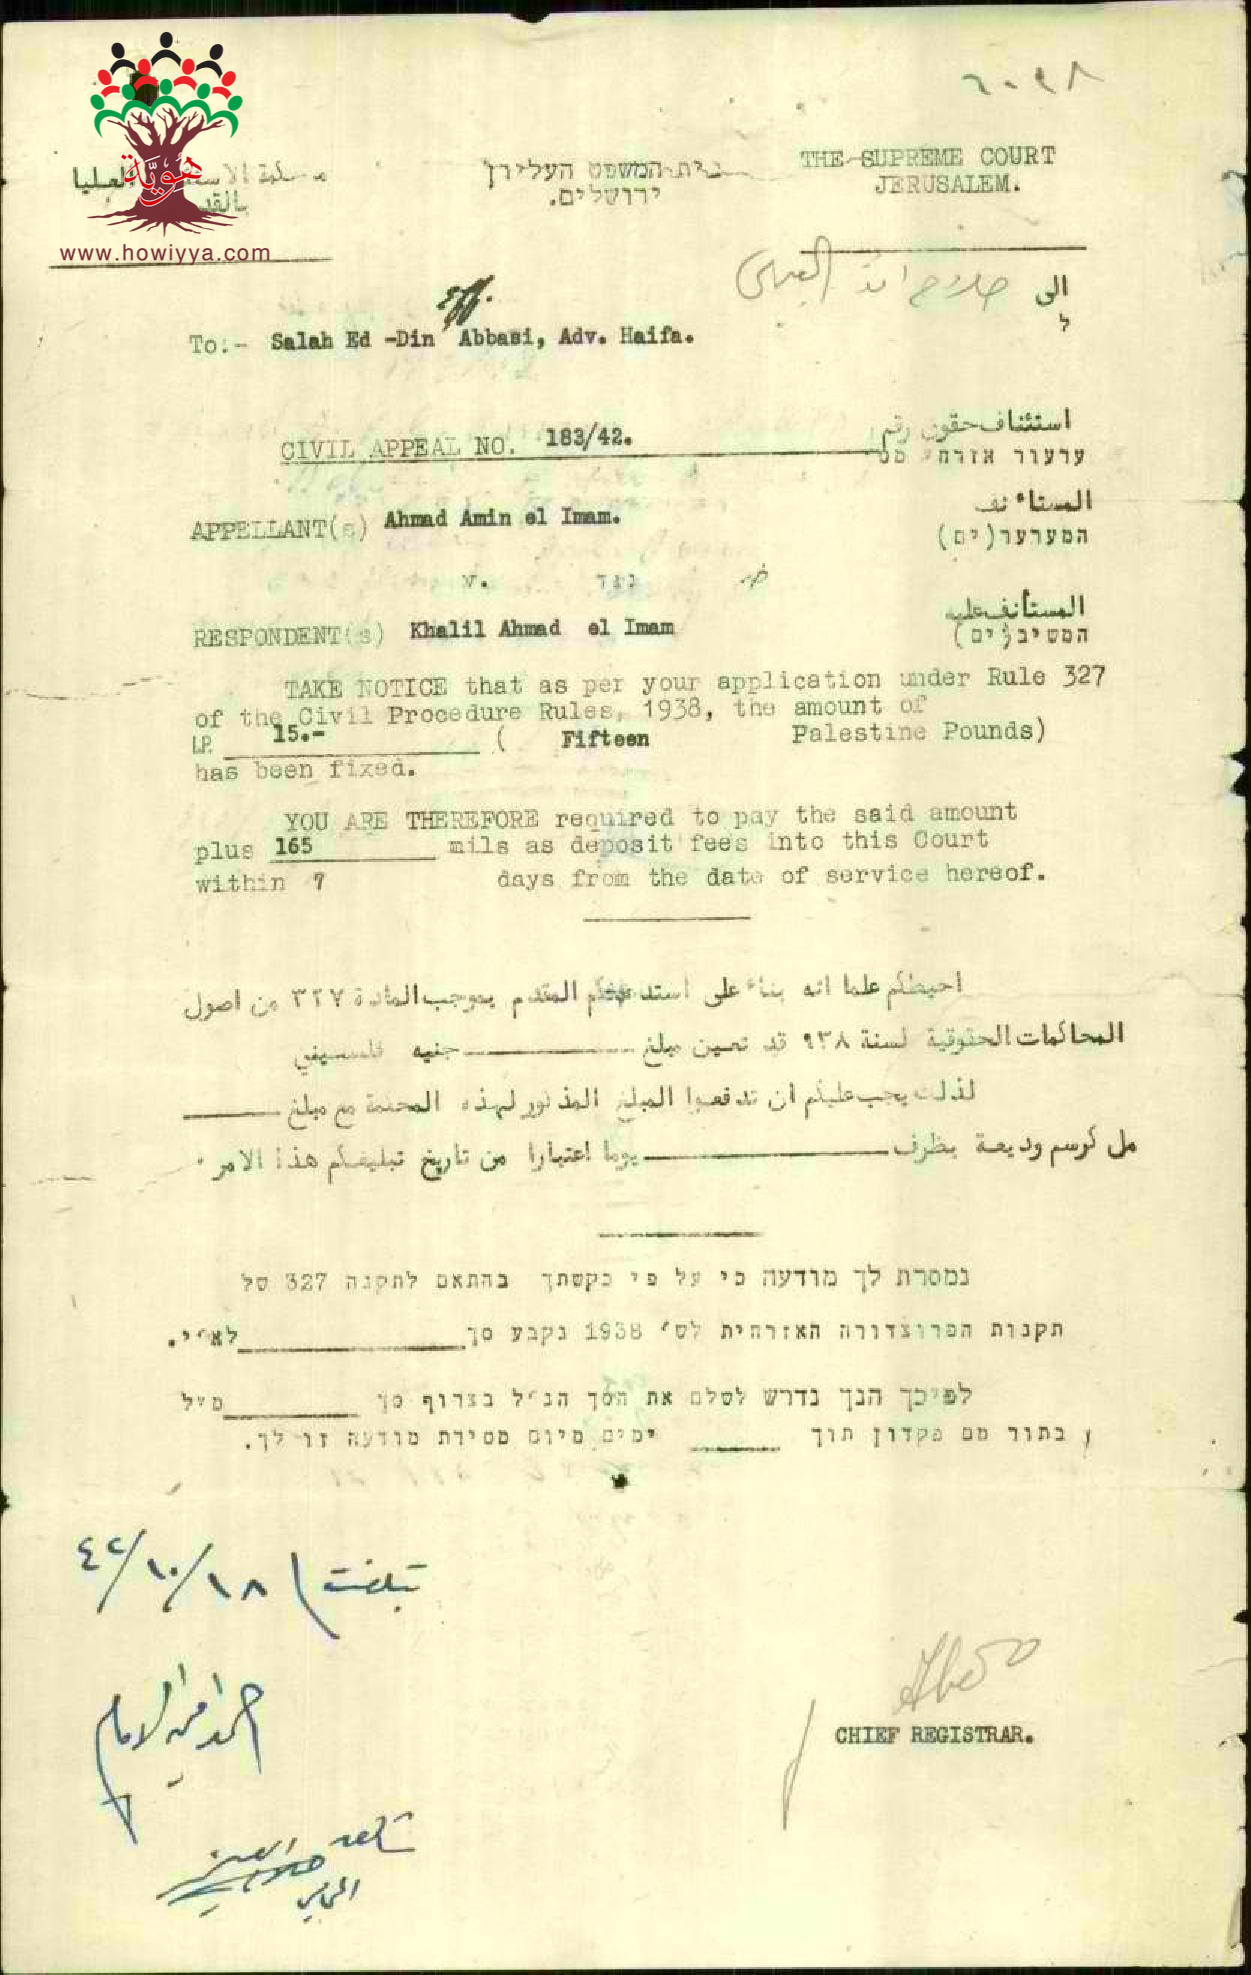 ٦٠٩٨
هويّة
www.howiyya.com
محكمة الاستئناف العليا
בית-המשפט העליון
THE SUPREME COURT
بالقدس
ירושלים.
JERUSALEM.
الى
ל
To:- Salah Ed -Din Abbasi, Adv. Haifa.
CIVIL APPEAL NO. 183/42.
استئناف حقوق رقم
ערעור אזרחי מס
APPELLANT(s) Ahmad Amin el Imam.
المستاءنف
המערער(ים)
v. נגד ضد
RESPONDENT(s) Khalil Ahmad el Imam
المستأنف عليه
המשיב(ים)
TAKE NOTICE that as per your application under Rule 327
of the Civil Procedure Rules, 1938, the amount of
LP. 15.- ( Fifteen Palestine Pounds)
has been fixed.
YOU ARE THEREFORE required to pay the said amount
plus 165 mils as deposit fees into this Court
within 7 days from the date of service hereof.
احيطكم علما انه بناء على استدعائكم المتقدم بموجب المادة ٣٢٧ من اصول
المحاكمات الحقوقية لسنة ٩٣٨ قد تعين مبلغ جنيه فلسطيني
لذلك يجب عليكم ان تدفعوا المبلغ المذكور لهذه المحكمة مع مبلغ
مل كرسم وديعة بظرف يوما اعتبارا من تاريخ تبليغكم هذا الامر.
נמסרת לך מודעה כי על פי בקשתך בהתאם לתקנה 327 של
תקנות הפרוצדורה האזרחית לש׳ 1938 נקבע סך לא״י.
לפיכך הנך נדרש לשלם את הסך הנ״ל בצרוף סך מיל
בתור מס פקדון תוך ימים מיום מסירת מודעה זו לך.
تبلغت ١٨/١٠/٤٢
احمد امين الامام
CHIEF REGISTRAR.
المحامي